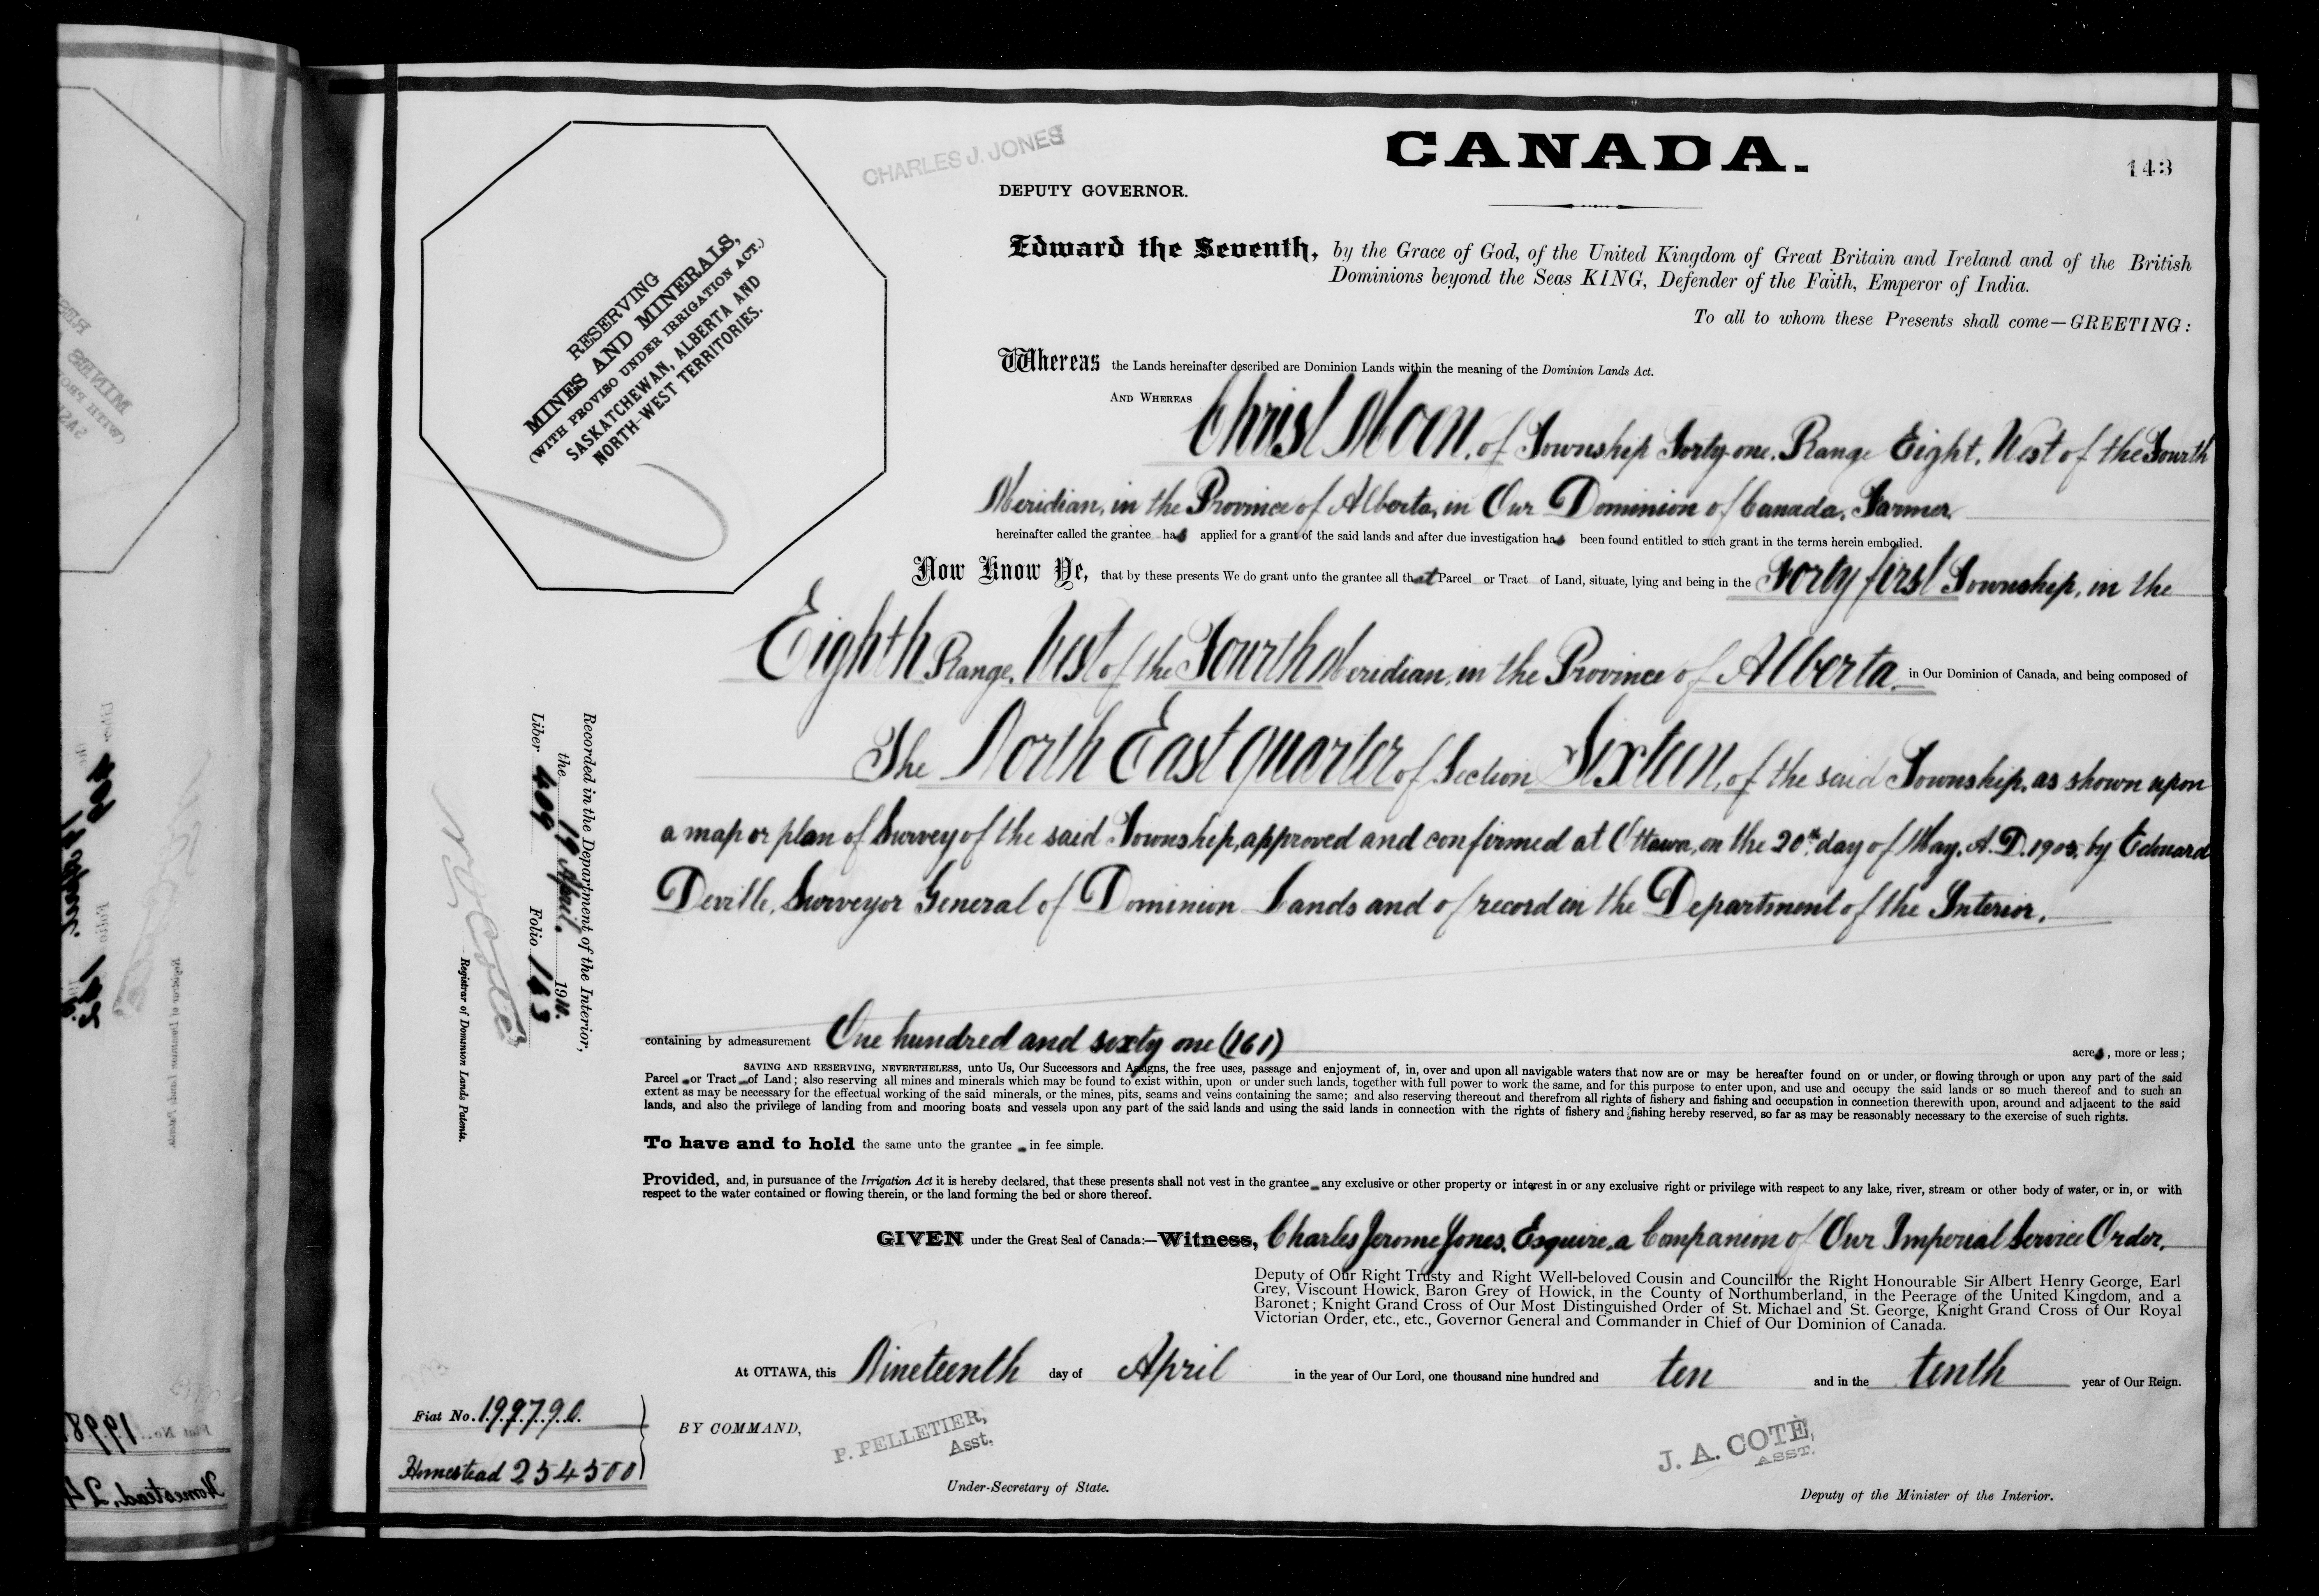 CANADA.
143
CHARLES J. JONES
DEPUTY GOVERNOR.
RESERVING
MINES AND MINERALS,
(WITH PROVISO UNDER IRRIGATION ACT.)
SASKATCHEWAN, ALBERTA AND
NORTH-WEST TERRITORIES.
Edward the Seventh, by the Grace of God, of the United Kingdom of Great Britain and Ireland and of the British
Dominions beyond the Seas KING, Defender of the Faith, Emperor of India.
To all to whom these Presents shall come—GREETING:
Whereas the Lands hereinafter described are Dominion Lands within the meaning of the Dominion Lands Act.
AND WHEREAS Christ Moen, of Township Forty-one, Range Eight, West of the Fourth
Meridian, in the Province of Alberta, in Our Dominion of Canada, Farmer.
hereinafter called the grantee has applied for a grant of the said lands and after due investigation has been found entitled to such grant in the terms herein embodied.
Now Know Ye, that by these presents We do grant unto the grantee all that Parcel or Tract of Land, situate, lying and being in the Forty first Township, in the
Eighth Range, West of the Fourth Meridian, in the Province of Alberta in Our Dominion of Canada, and being composed of
The North East quarter of Section Sixteen, of the said Township, as shown upon
a map or plan of Survey of the said Township, approved and confirmed at Ottawa, on the 20th day of May, A. D. by Edouard
Deville, Surveyor General of Dominion Lands and of record in the Department of the Interior.
containing by admeasurement One hundred and sixty one (161) acres, more or less;
SAVING AND RESERVING, NEVERTHELESS, unto Us, Our Successors and Assigns, the free uses, passage and enjoyment of, in, over and upon all navigable waters that now are or may be hereafter found on or under, or flowing through or upon any part of the said
Parcel or Tract of Land; also reserving all mines and minerals which may be found to exist within, upon or under such lands, together with full power to work the same, and for this purpose to enter upon, and use and occupy the said lands or so much thereof and to such an
extent as may be necessary for the effectual working of the said minerals, or the mines, pits, seams and veins containing the same; and also reserving thereout and therefrom all rights of fishery and fishing and occupation in connection therewith upon, around and adjacent to the said
lands, and also the privilege of landing from and mooring boats and vessels upon any part of the said lands and using the said lands in connection with the rights of fishery and fishing hereby reserved, so far as may be reasonably necessary to the exercise of such rights.
To have and to hold the same unto the grantee in fee simple.
Provided, and, in pursuance of the Irrigation Act it is hereby declared, that these presents shall not vest in the grantee any exclusive or other property or interest in or any exclusive right or privilege with respect to any lake, river, stream or other body of water, or in, or with
respect to the water contained or flowing therein, or the land forming the bed or shore thereof.
GIVEN under the Great Seal of Canada:—Witness, Charles Jerome Jones, Esquire, a Companion of Our Imperial Service Order,
Deputy of Our Right Trusty and Right Well-beloved Cousin and Councillor the Right Honourable Sir Albert Henry George, Earl
Grey, Viscount Howick, Baron Grey of Howick, in the County of Northumberland, in the Peerage of the United Kingdom, and a
Baronet; Knight Grand Cross of Our Most Distinguished Order of St. Michael and St. George, Knight Grand Cross of Our Royal
Victorian Order, etc., etc., Governor General and Commander in Chief of Our Dominion of Canada.
At OTTAWA, this Nineteenth day of April in the year of Our Lord, one thousand nine hundred and ten and in the tenth year of Our Reign.
BY COMMAND,
P. PELLETIER,
Asst.
Under-Secretary of State.
J. A. COTÉ,
ASST.
Deputy of the Minister of the Interior.
Recorded in the Department of the Interior,
the 19 April. 1910.
Liber 409 Folio 143
N. O. Coté
Registrar of Dominion Lands Patents.
Fiat No. 199790
Homestead 254500